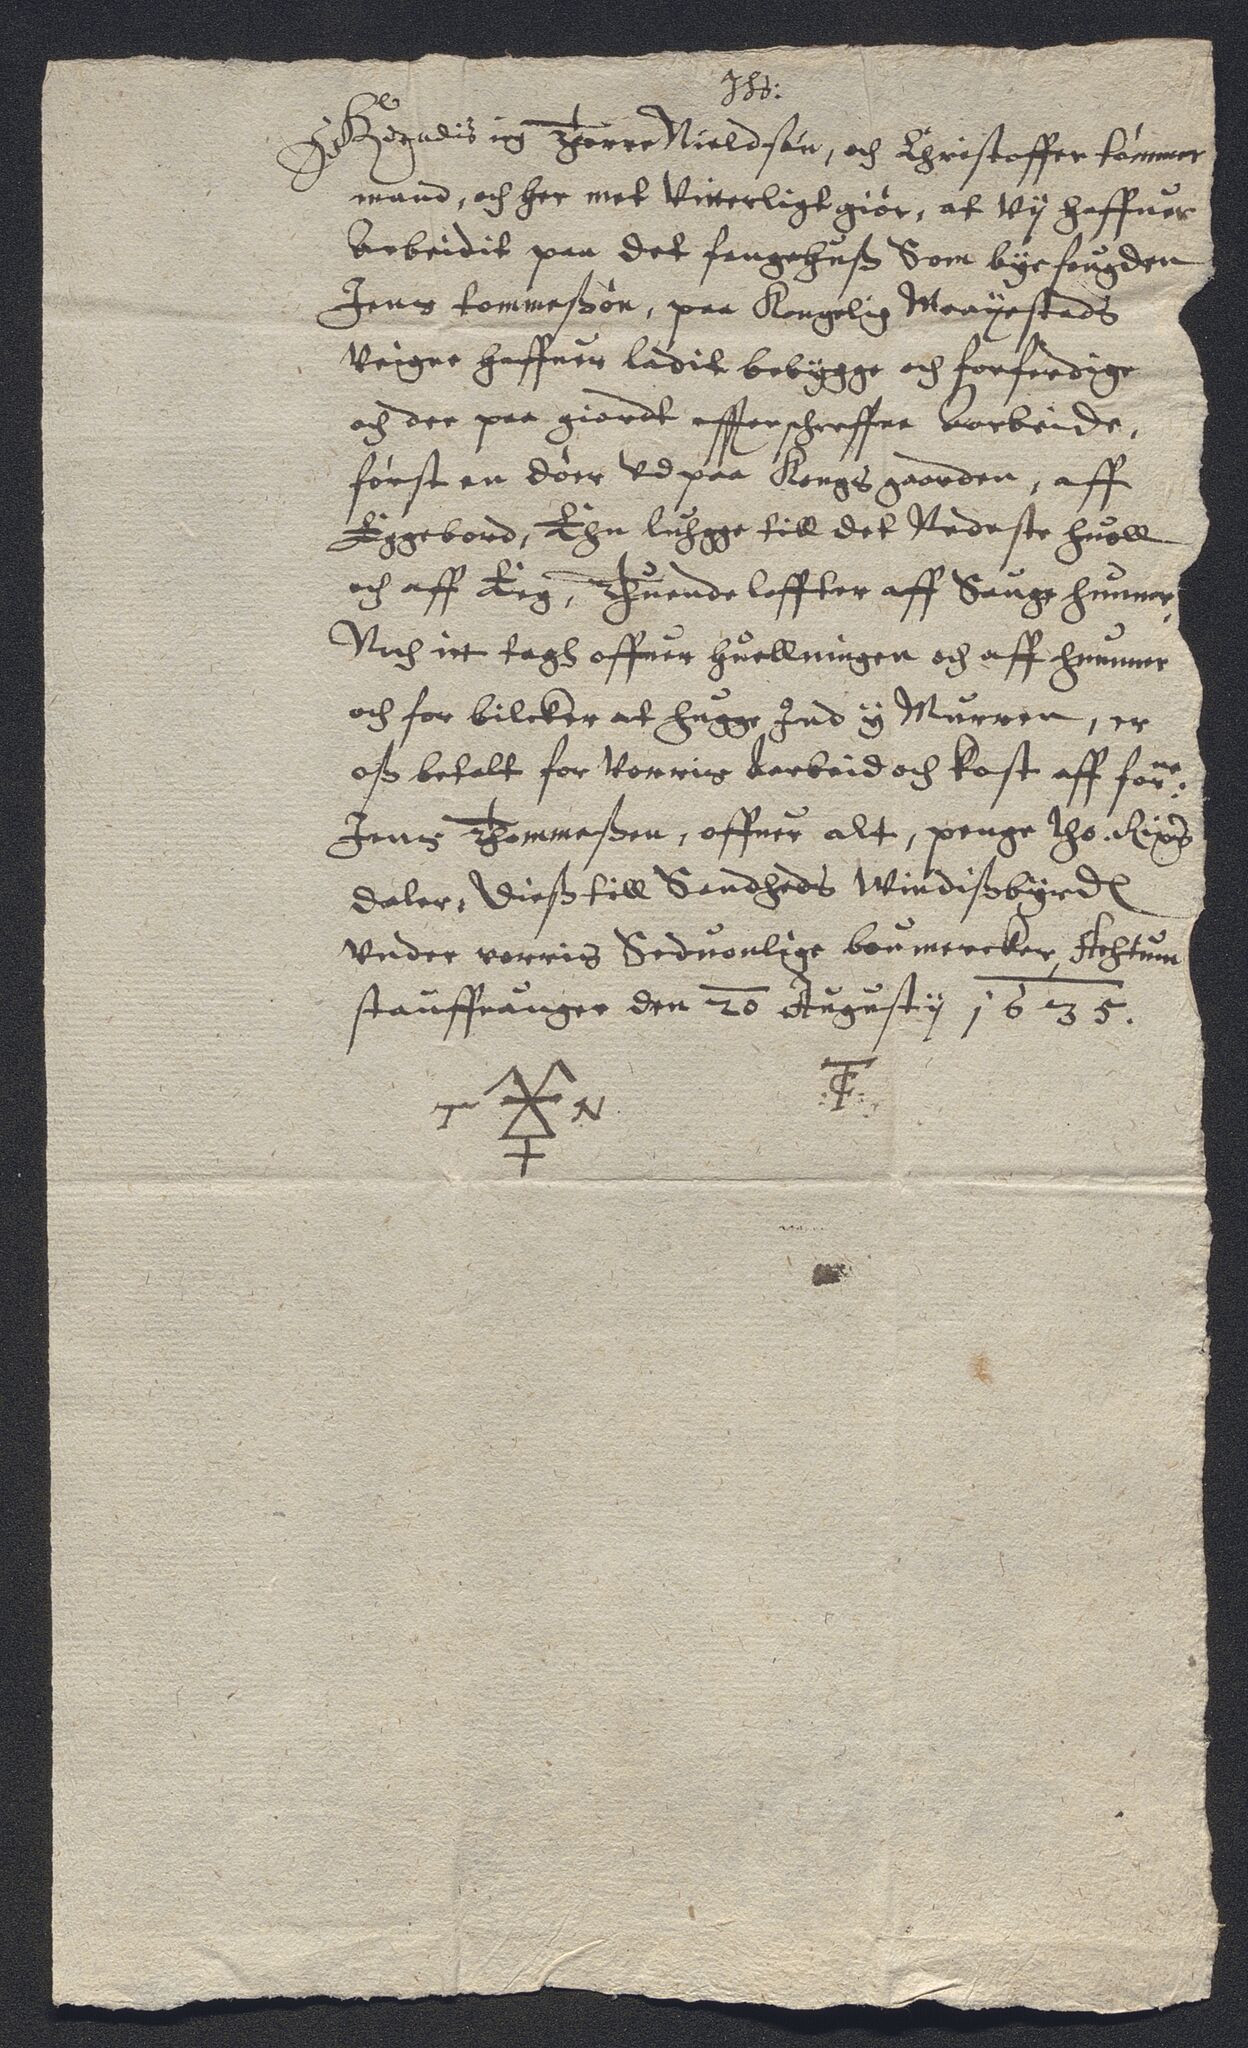 Jhs:
Kiendis ieg Thorre Nieldsøn, och Christoffer tømmer
mand, och her met Vitterligt giør, at Vy haffuer
Arbeidit paa det fangehuß Som byefougden
Jens tommeßøn, paa Kongelig Maayestads
Veigne haffuer ladit bebygge och forferdige
och der paa giordt effterschreffne Aarbeide,
først en døer vd paa Kongs gaarden, aff
Eggebord, Ehn luhgge till det Nedeste huoll
och aff Eeg, Thuende loffter aff Sauge hunner,
Noch itt tagh offuer huellningen och aff hunner
och for bilcker at hugge Ind y Murren, er
oß betalt for Vorris Aarbeid och kost aff forne:
Jens Thommeßen, offuer alt, penge tho. Rixs
daler, Dieß till Sandheds Windißbyrd
vnder vorris Seduonlige boumercker, Achtum
stauffuanger den 20 Augusty 1635.
T N
T C